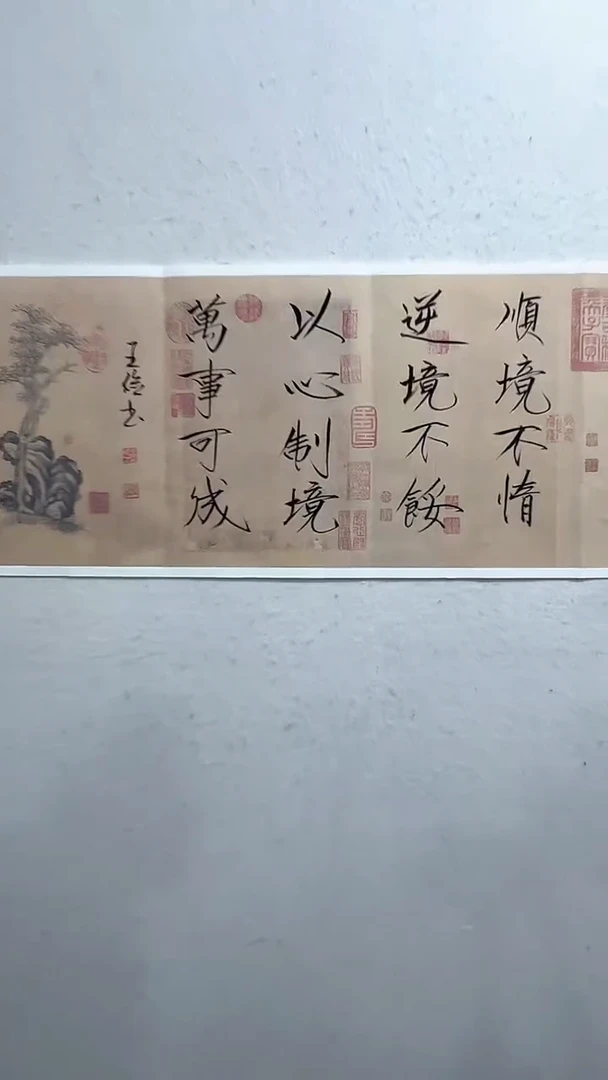 順境不惰
逆境不餒
以心制境
萬事可成
王俭书